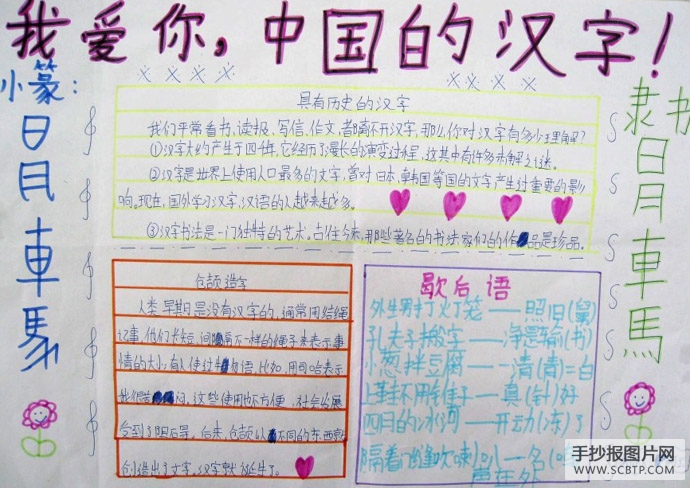 我爱你，中国的汉字！
小篆：
日
月
車
馬
具有历史的汉字
我们平常看书、读报、写信、作文，都离不开汉字，那么，你对汉字有多少理解？
①汉字大约产生于四千年，它经历了漫长的演变过程，这其中有许多未解之谜。
②汉字是世界上使用人口最多的文字，曾对日本、韩国等国的文字产生过重要的影
响。现在，国外学习汉字、汉语的人越来越多。
③汉字书法是一门独特的艺术。古往今来，那些著名的书法家们的作品是珍品。
隶书
日
月
車
馬
仓颉造字
人类早期是没有汉字的，通常用结绳
记事，他们长短、间隔不一样的绳子来表示事
情的大小；有人使过
物语，比如，用
表示
这些使用也不方便，社会发展
到了
后来，仓颉以不同的东西
创造出了文字，汉字就诞生了。
歇后语
外生男打灯笼——照旧(舅)
孔夫子搬字——净是输(书)
小葱拌豆腐——清(青)=白
上鞋不用锥子——真(针)好
四月的冰河——开动(冻)了
隔着门缝吹喇叭——名(鸣)
声在外
手抄报图片网
WWW.SCBTP.COM